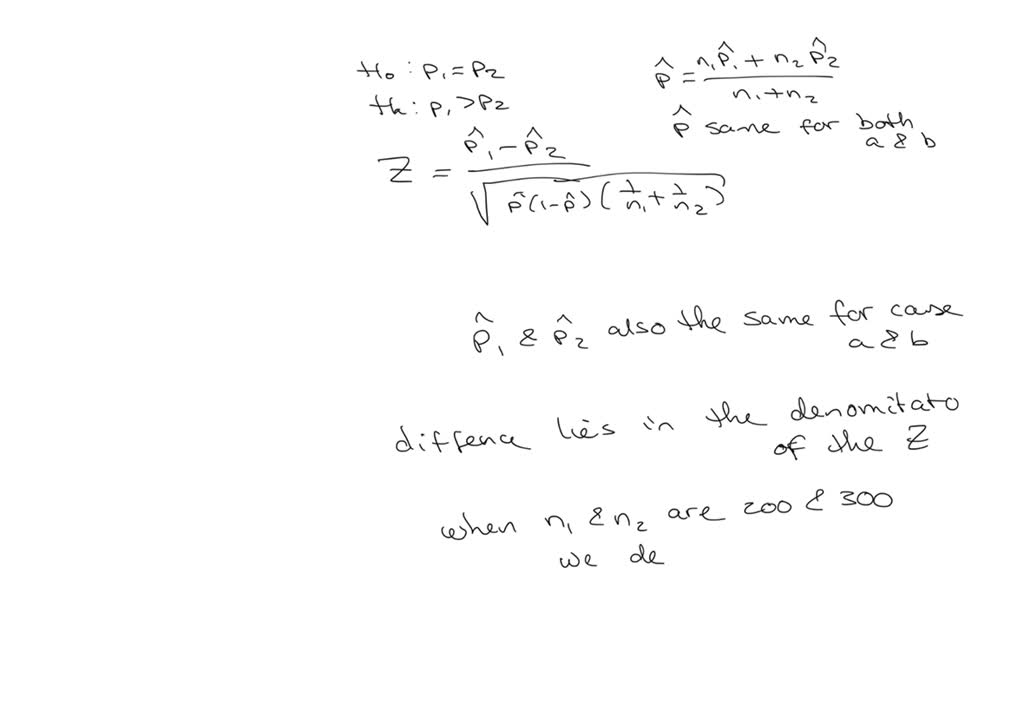 H₀ : p₁ = p₂
Hₐ : p₁ > p₂
p̂ = (n₁p̂₁ + n₂p̂₂) / (n₁ + n₂)
p̂ same for both
a & b
Z = (p̂₁ − p̂₂) / √(p̂(1−p̂)(1/n₁ + 1/n₂))
p̂₁ & p̂₂ also the same for case
a & b
diffence lies in the denomitato
of the Z
when n₁ & n₂ are 200 & 300
we de